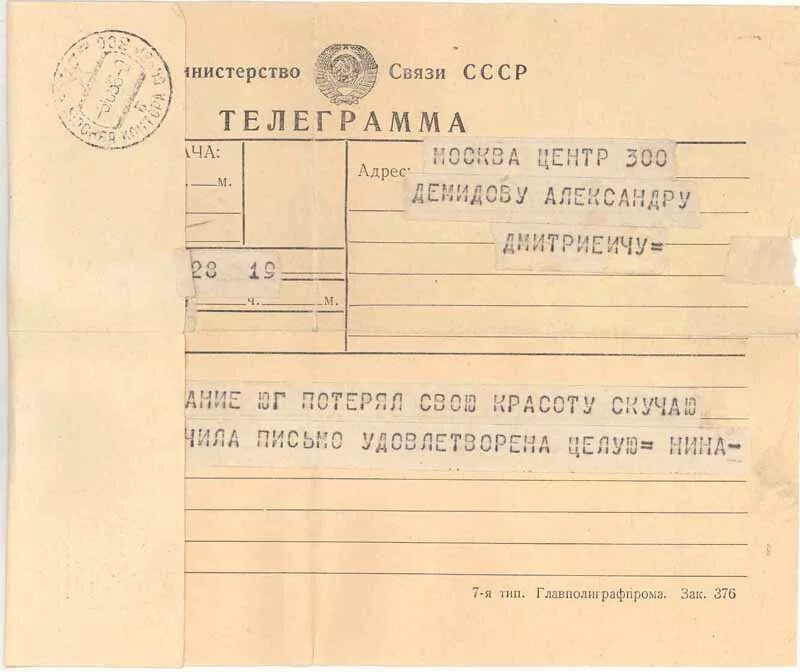 нистерство Связи СССР
ТЕЛЕГРАММА
АЧА:
м.
Адрес:
МОСКВА ЦЕНТР 300
ДЕМИДОВУ АЛЕКСАНДРУ
ДМИТРИЕИЧУ=
28 19
ч. м.
АНИЕ ЮГ ПОТЕРЯЛ СВОЮ КРАСОТУ СКУЧАЮ
ЧИЛА ПИСЬМО УДОВЛЕТВОРЕНА ЦЕЛУЮ= НИНА-
7-я тип. Главполиграфпрома. Зак. 376